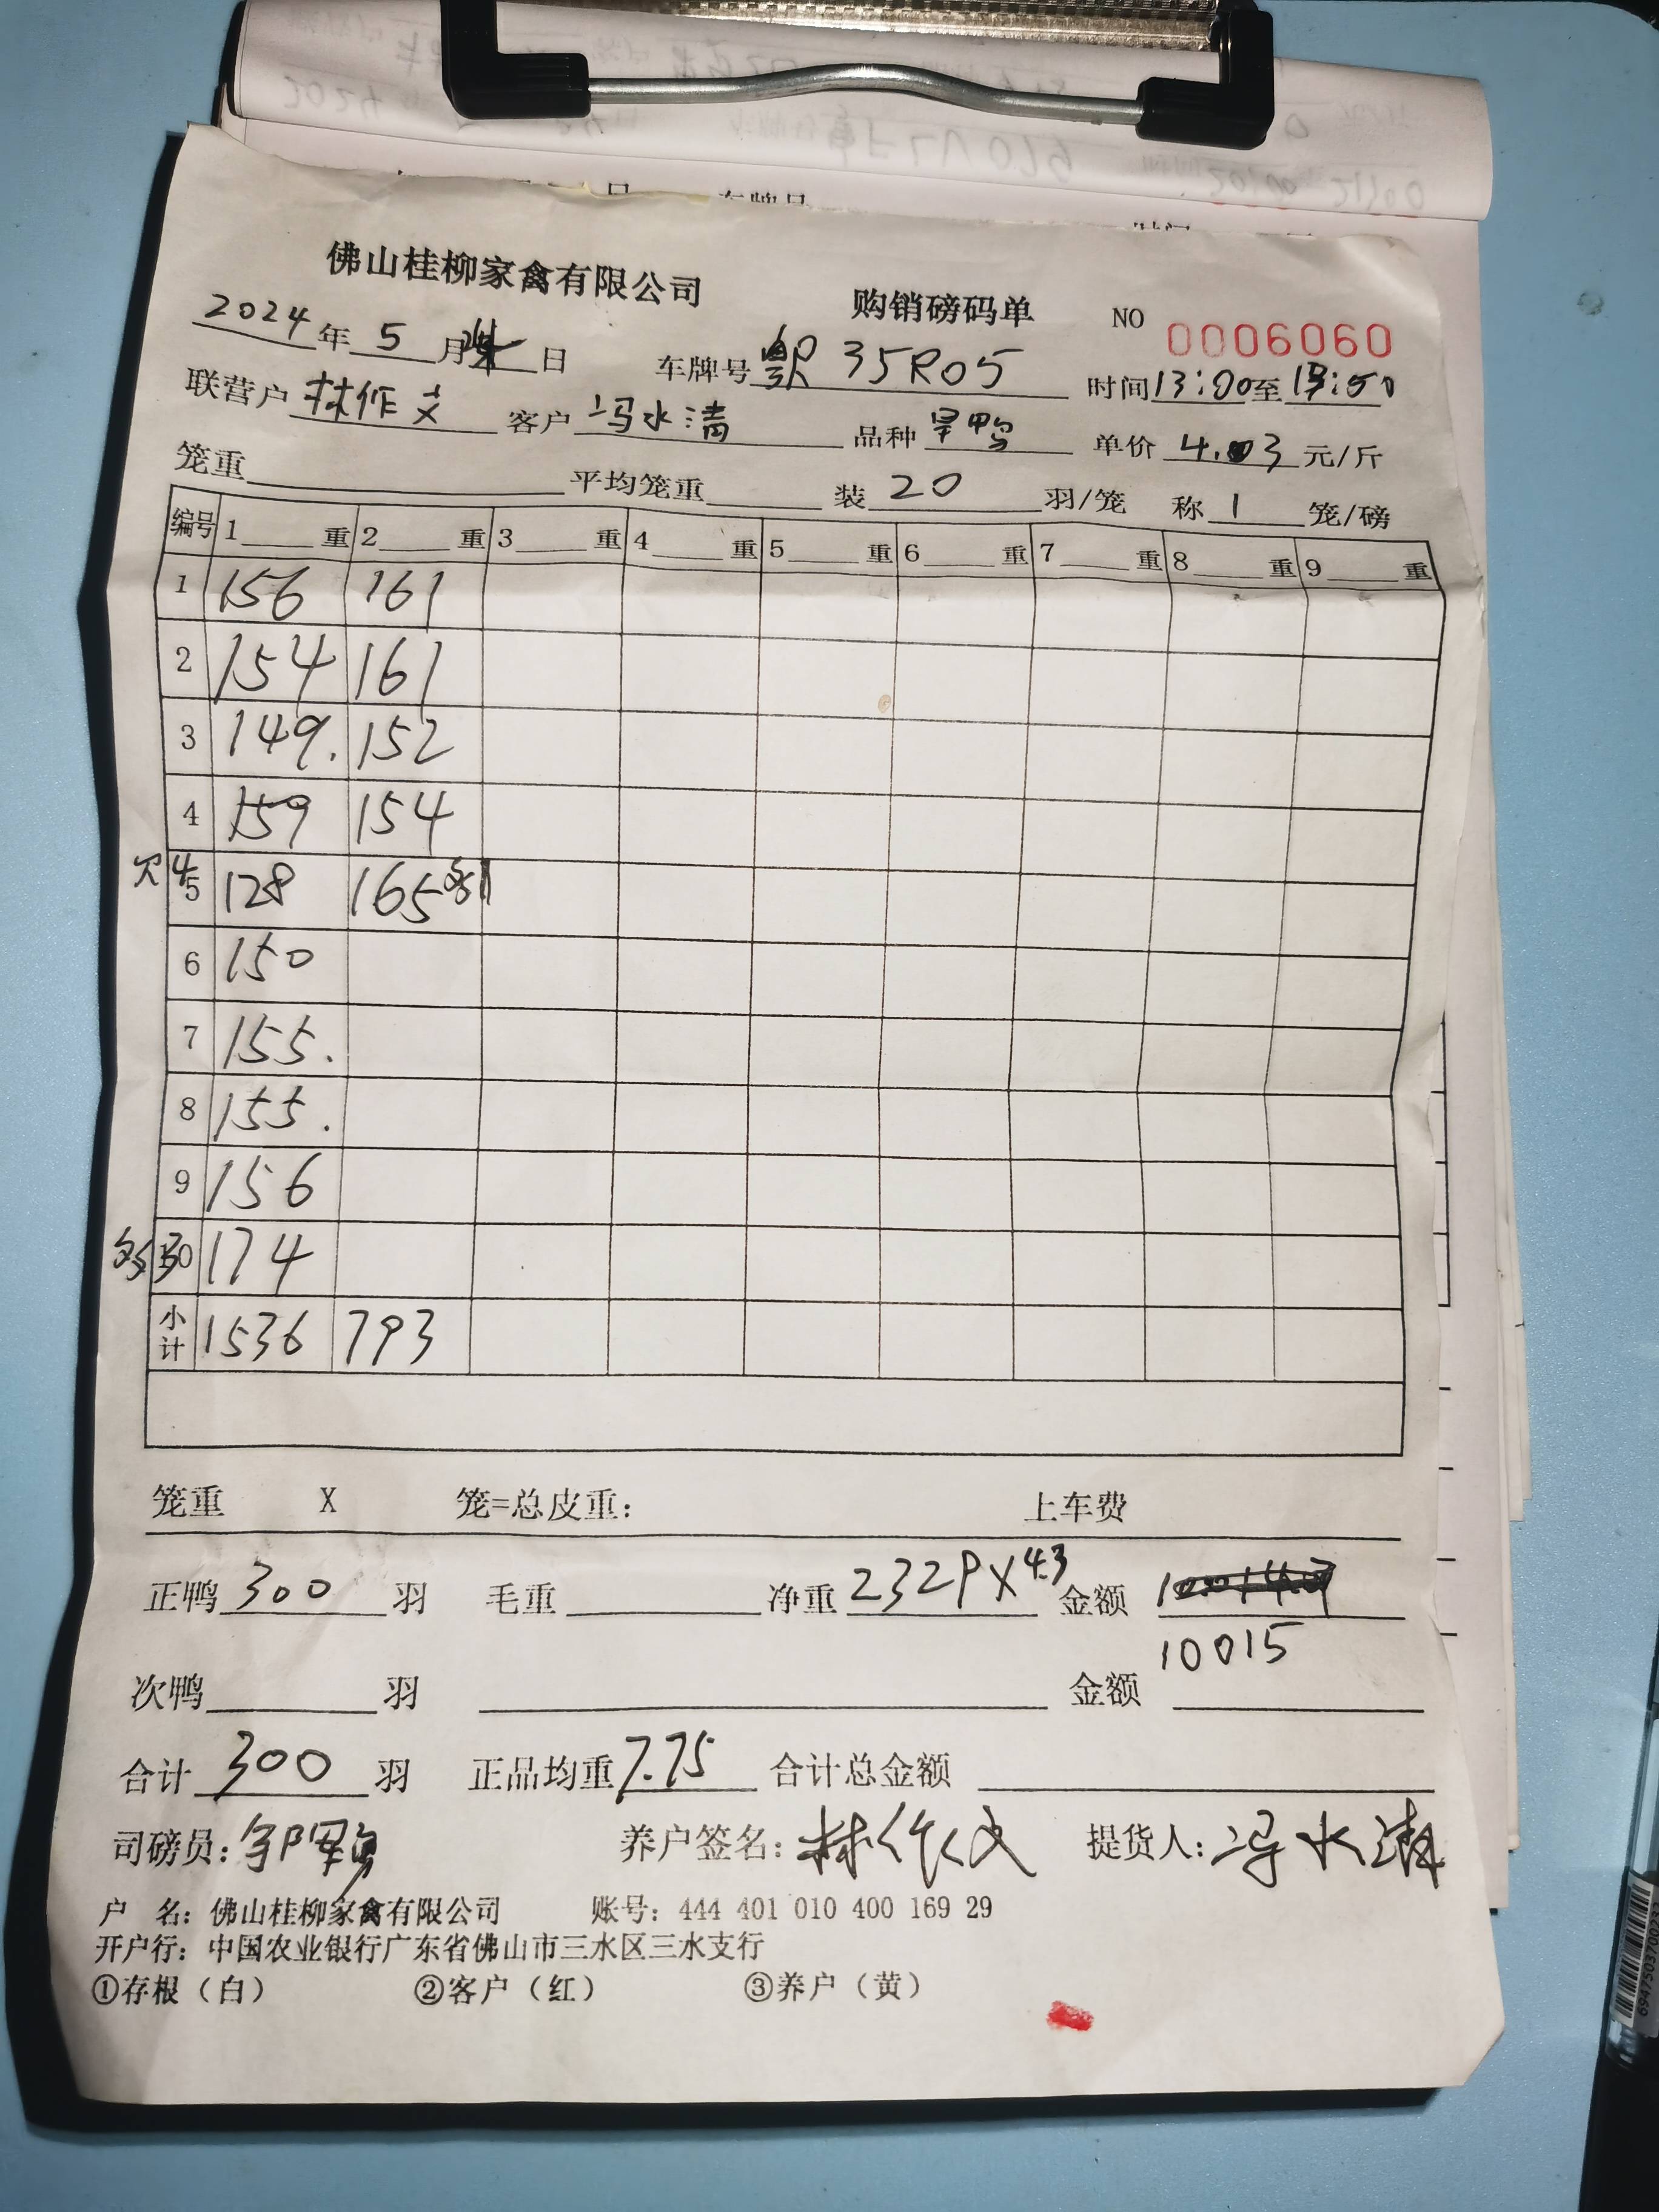 佛山桂柳家禽有限公司 购销磅码单 NO 0006060
2024年 5 月 日 车牌号 35R05 时间13:00至13:50
联营户 林作文 客户 冯水清 品种 旱鸭 单价 4.03 元/斤
笼重 平均笼重 装 20 羽/笼 称 1 笼/磅
编号 1 重 2 重 3 重 4 重 5 重 6 重 7 重 8 重 9 重
1 156 161
2 154 161
3 149. 152
4 159 154
欠4 5 128 165 多1
6 150
7 155.
8 155.
9 156
多3 10 174
小计 1536 793
笼重 X 笼=总皮重: 上车费
正鸭 300 羽 毛重 净重 2329X4.3 金额
10015
次鸭 羽 金额
合计 300 羽 正品均重 7.75 合计总金额
司磅员: 养户签名: 林作文 提货人: 冯水清
户 名: 佛山桂柳家禽有限公司 账号: 444 401 010 400 169 29
开户行: 中国农业银行广东省佛山市三水区三水支行
①存根（白） ②客户（红） ③养户（黄）
6947503700233